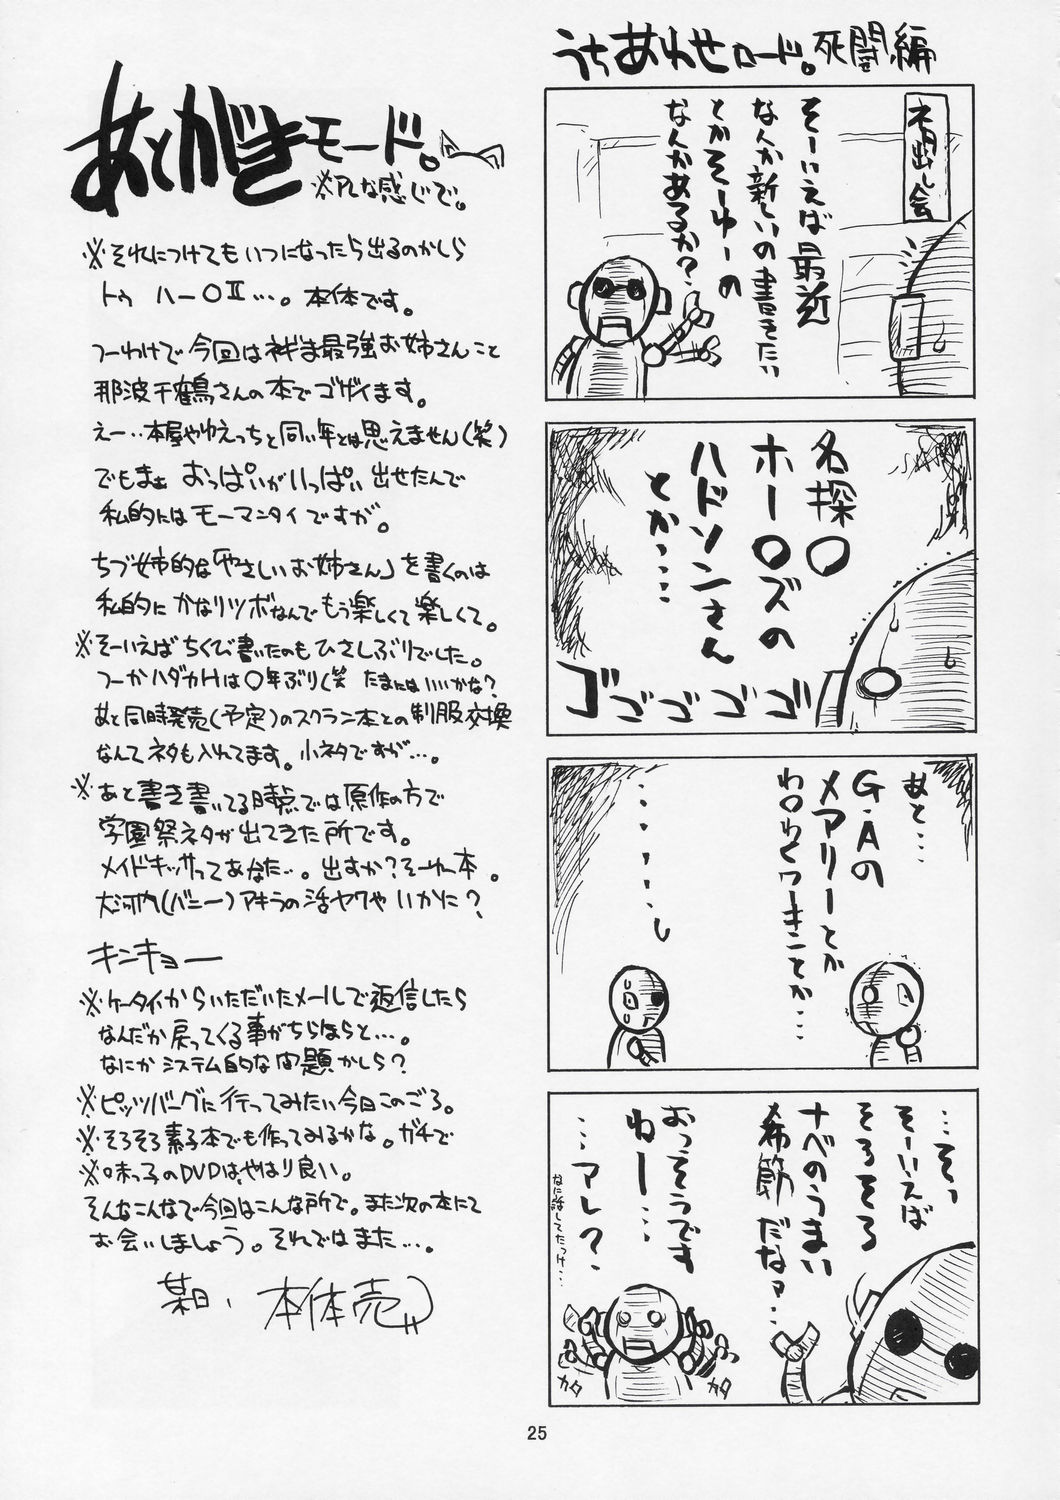 うちあわせロード。死闘編
ネタ出し会
そーいえば最近
なんか新しいの書きたい
とかそーゆーの
なんかあるか？
名探〇
ホー〇ズの
ハドソンさん
とか‥‥
ゴゴゴゴゴ
あと‥‥
G・Aの
メアリーとか
‥‥‥‥‥
…そっ
そーいえば
そろそろ
ナベのうまい
季節だなァ‥‥
おっそうです
ねー‥‥
‥‥アレ？
なに話してたっけ‥‥
カタ
カタ
あとがきモード。
※アレな感じで。
※それにつけてもいつになったら出るのかしら
トゥ ハー〇Ⅱ…。本体です。
つーわけで今回はネギま最強お姉さんこと
那波千鶴さんの本でゴザイます。
えー‥本屋やゆえっちと同い年とは思えません(笑)
でもまぁ おっぱいがいっぱい出せたんで
私的にはモーマンタイですが。
ちづ姉的な「やさしいお姉さん」を書くのは
私的にかなりツボなんでもう楽しくて楽しくて。
※そーいえばちくび書いたのもひさしぶりでした。
つーかハダカHは〇年ぶり(笑 たまにはいいかな？
あと同時発売(予定)のスクラン本との制服交換
なんてネタも入れてます。小ネタですが…。
※あと書き書いてる時点では原作の方で
学園祭ネタが出てきた所です。
メイドキッサってあなた…。出すか？そーゆー本。
大河内(バニー)アキラの活ヤクやいかに？
キンキョー
※ケータイからいただいたメールで返信したら
なんだか戻ってくる事がちらほらと…。
なにかシステム的な問題かしら？
※ピッツバーグに行ってみたい今日このごろ。
※そろそろ素子本でも作ってみるかな。ガチで
※味っ子のDVDは、やはり良い。
そんなこんなで今回はこんな所で。また次の本にて
お会いしましょう。それではまた…。
某日、本体売
25